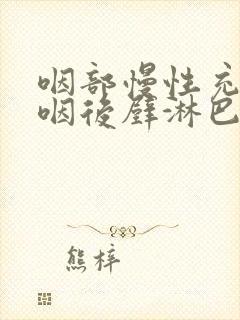 咽部慢性充
咽後壁淋巴
熊梓